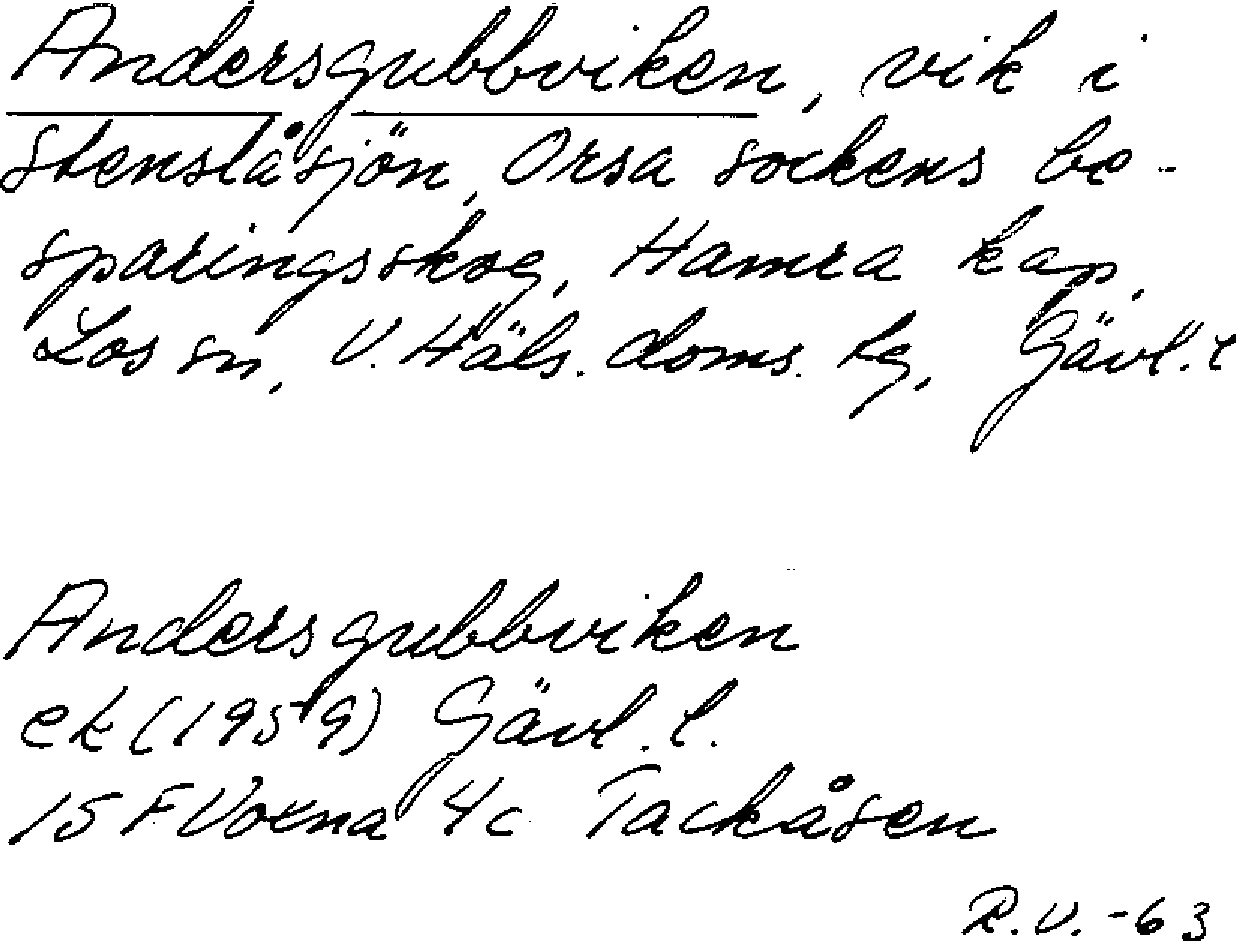 Andersgubbviken, vik i
Stenslåsjön, Orsa sockens be-
sparingsskog, Hamra kap.
Los sn, V. Häls. doms. tg, Gävl. l
Andersgubbviken
ek (1959) Gävl. l.
15 F Voxna 4c Tackåsen
R.V. -63